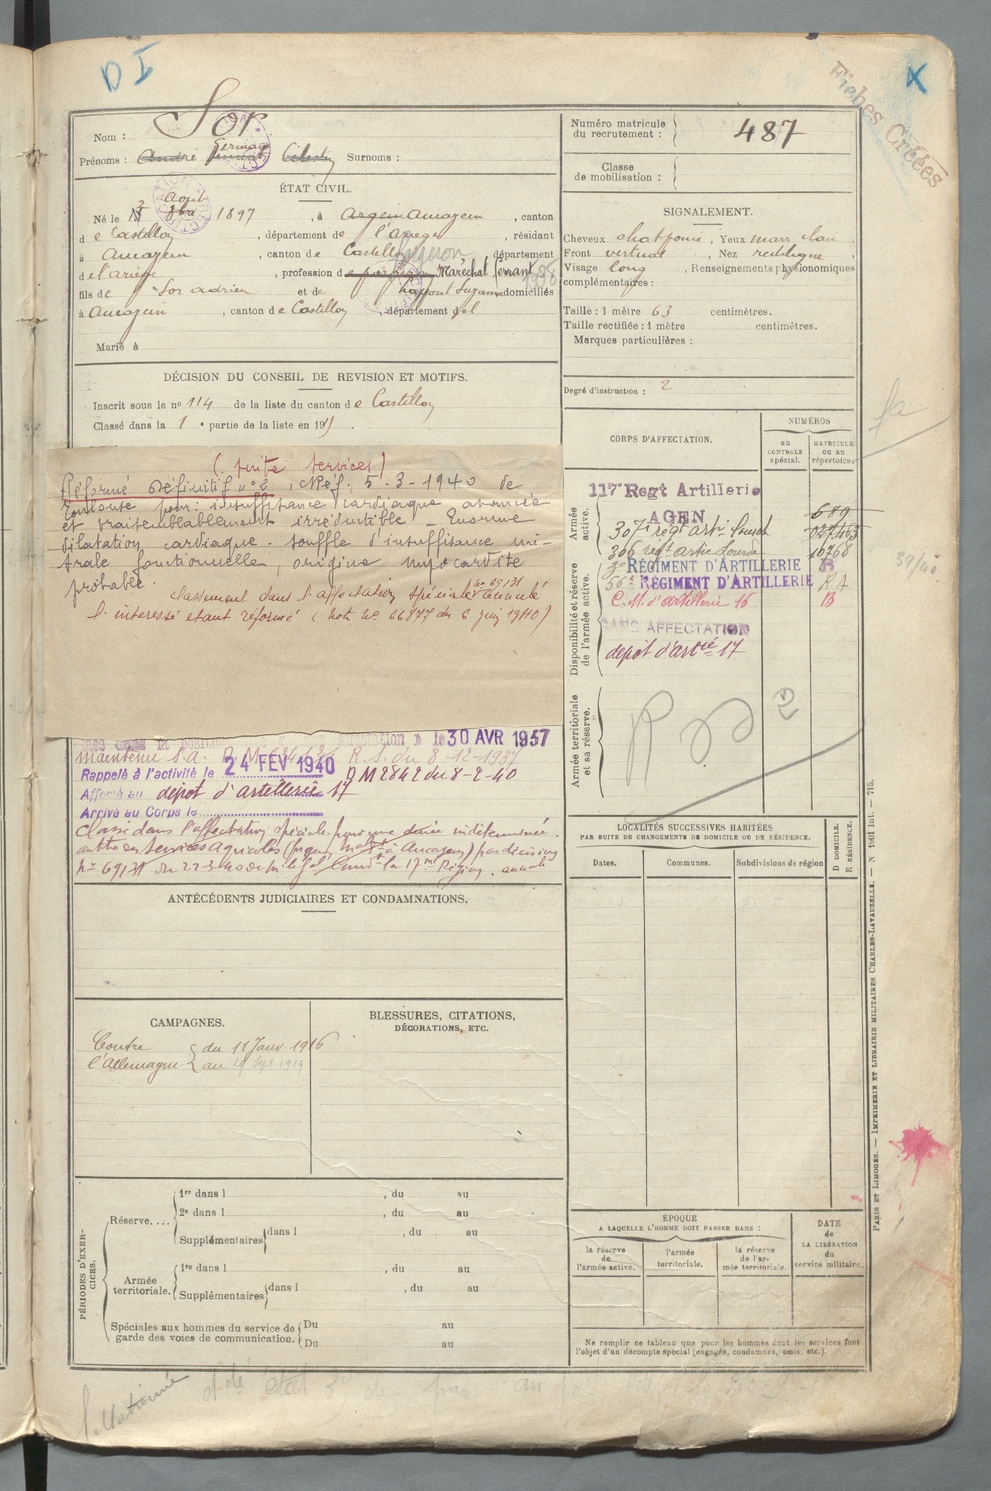 D I
Fiches Créées
X
Nom : Sor
Prénoms : André Germain Célestin Surnoms :
Numéro matricule du recrutement : 487
Classe de mobilisation :
ÉTAT CIVIL.
Né le 3 Août 1897, à Argein Aucazein, canton
de Castillon, département de l'Ariège, résidant
à Aucazein, canton de Castillon, département
de l'ariège, profession de Maréchal ferrant 1936
fils de Sor adrien et de Suzanne domiciliés
à Aucazein, canton de Castillon, département d
Marié à
SIGNALEMENT.
Cheveux chat foncé, Yeux marr clair,
Front vertical, Nez rectiligne,
Visage long, Renseignements physionomiques
complémentaires :
Taille : 1 mètre 63 centimètres.
Taille rectifiée : 1 mètre centimètres.
Marques particulières :
Degré d'instruction : 2
DÉCISION DU CONSEIL DE REVISION ET MOTIFS.
Inscrit sous le n° 114 de la liste du canton de Castillon
Classé dans la 1e partie de la liste en 191
(suite services)
Réformé Définitif n° 2, CRéf. 5-3-1940 de
Toulouse pour : insuffisance cardiaque avancée
et vraisemblablement irréductible _ Enorme
dilatation cardiaque. souffle d'insuffisance mi-
trale fonctionnelle, origine myocardite
probable.
classement dans l'affectation spéciale n° 69131 annulé
l'interessé etant réformé (note n° 66777 du 6 juin 1940)
30 AVR 1937
maintenu S.A. R.S. du 8-12-1937
Rappelé à l'activité le 24 FEV 1940 DM 2842 du 8-2-40
Affecté au dépot d'artillerie 17
Arrivé au Corps le
Classé dans l'affectation spéciale pour une durée indéterminée
au titre des Services Agricoles à Aucazein) par décision
n° 69131 du 22-3-40 la 17me Région. annulé
CORPS D'AFFECTATION.
NUMÉROS
au contrôle spécial.
matricule ou au répertoire.
Armée active.
117e Regt Artillerie
AGEN
689
307e regt artie lourde
306 regt artie lourde 10768
Disponibilité et réserve de l'armée active.
RÉGIMENT D'ARTILLERIE B
56e RÉGIMENT D'ARTILLERIE RA
C.M. d'artillerie 16 B
SANS AFFECTATION
dépot d'artie 17
Armée territoriale et sa réserve.
31/40
ANTÉCÉDENTS JUDICIAIRES ET CONDAMNATIONS.
LOCALITÉS SUCCESSIVES HABITÉES
PAR SUITE DE CHANGEMENTS DE DOMICILE OU DE RÉSIDENCE.
Dates. Communes. Subdivisions de région
D DOMICILE. R RÉSIDENCE.
CAMPAGNES.
Contre du 11 Janv 1916
l'Allemagne au Sept 1919
BLESSURES, CITATIONS,
DÉCORATIONS, ETC.
PÉRIODES D'EXERCICES.
Réserve....
1re dans l , du au
2e dans l , du au
Supplémentaires dans l , du au
Armée territoriale.
1re dans l , du au
Supplémentaires dans l , du au
Spéciales aux hommes du service de garde des voies de communication.
Du au
Du au
ÉPOQUE
A LAQUELLE L'HOMME DOIT PASSER DANS :
la réserve de l'armée active.
l'armée territoriale.
la réserve de l'armée territoriale.
DATE de LA LIBÉRATION du service militaire.
Ne remplir ce tableau que pour les hommes dont les services font
l'objet d'un décompte spécial (engagés, condamnés, omis, etc.).
PARIS ET LIMOGES. — IMPRIMERIE ET LIBRAIRIE MILITAIRES CHARLES-LAVAUZELLE. — N 1001 Int. — 715.